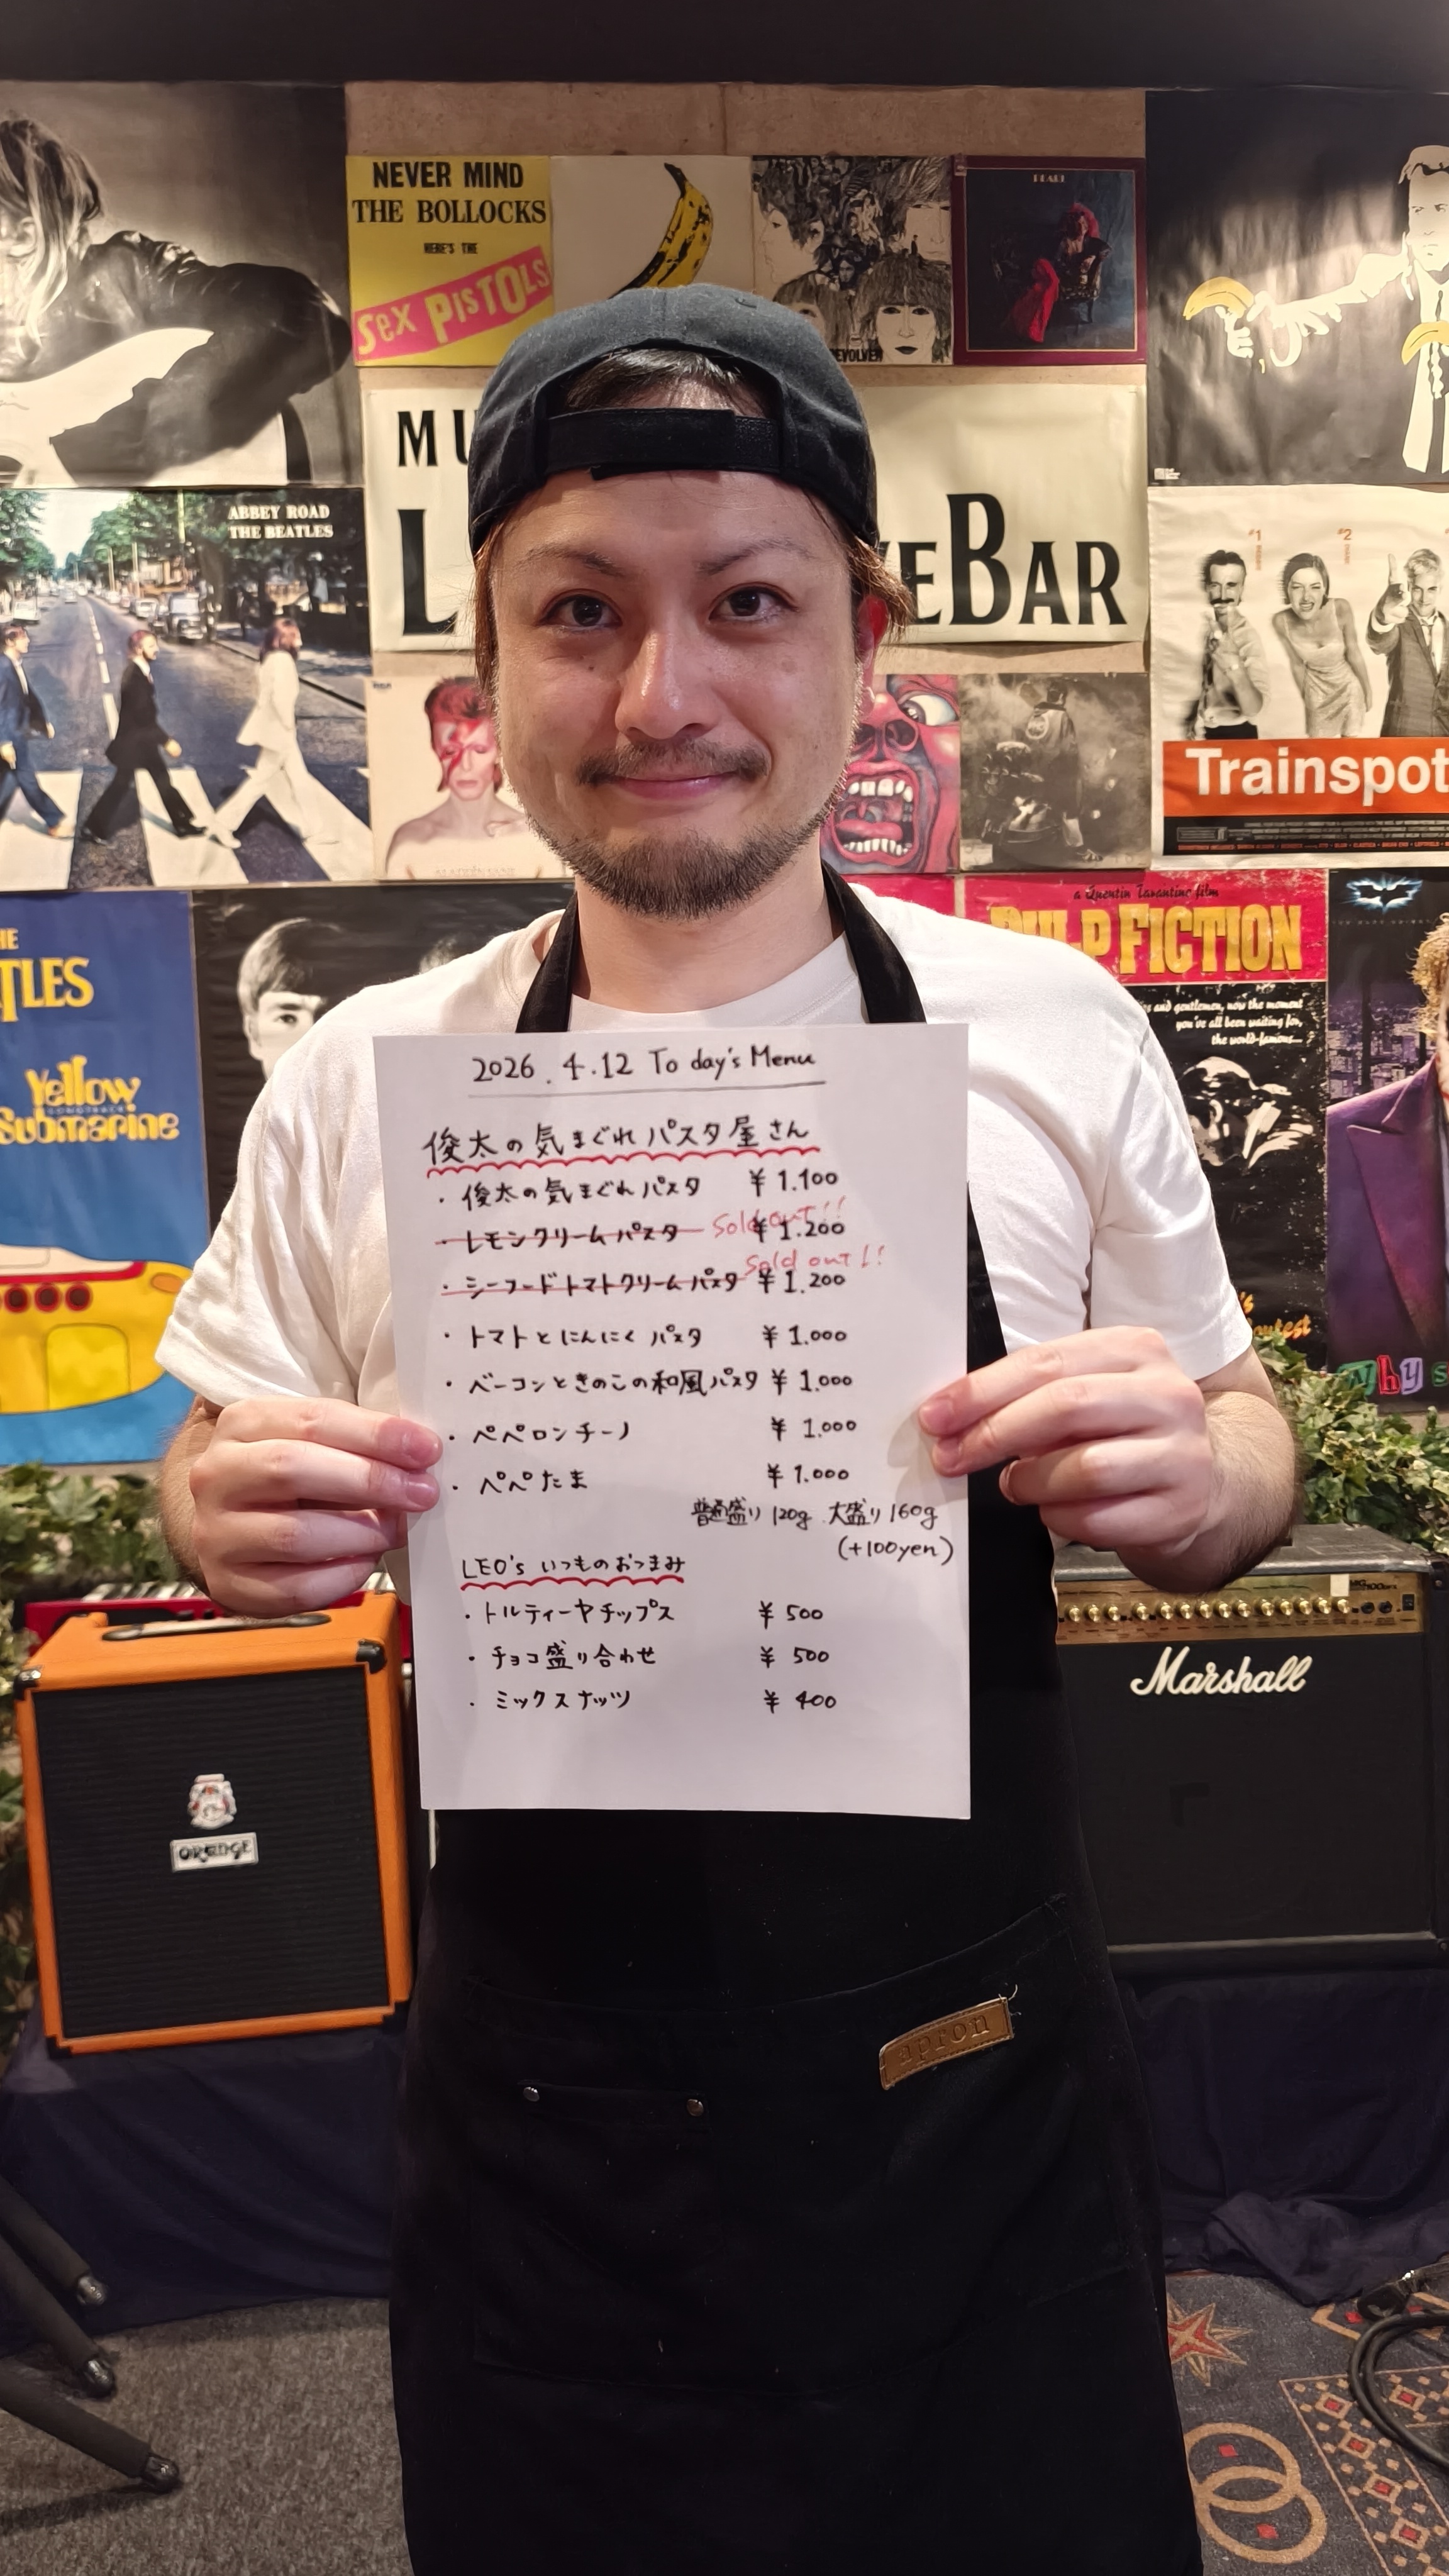 NEVER MIND
THE BOLLOCKS
HERE'S THE
Sex PISTOLS
REVOLVER
PEARL
MU
L
EBAR
ABBEY ROAD
THE BEATLES
#1
#2
Trainspot
THE
TLES
Yellow
Submarine
a Quentin Tarantino film
PULP FICTION
and gentlemen, now the moment
you've all been waiting for,
the world-famous...
Why s
2026.4.12 To day's Menu
俊太の気まぐれパスタ屋さん
・俊太の気まぐれパスタ ¥1.100
・レモンクリームパスタ Sold out!! ¥1.200
・シーフードトマトクリームパスタ Sold out!! ¥1.200
・トマトとにんにくパスタ ¥1.000
・ベーコンときのこの和風パスタ ¥1.000
・ペペロンチーノ ¥1.000
・ペペたま ¥1.000
普通盛り120g 大盛り160g
(+100yen)
LEO's いつものおつまみ
・トルティーヤチップス ¥500
・チョコ盛り合わせ ¥500
・ミックスナッツ ¥400
ORANGE
Marshall
apron